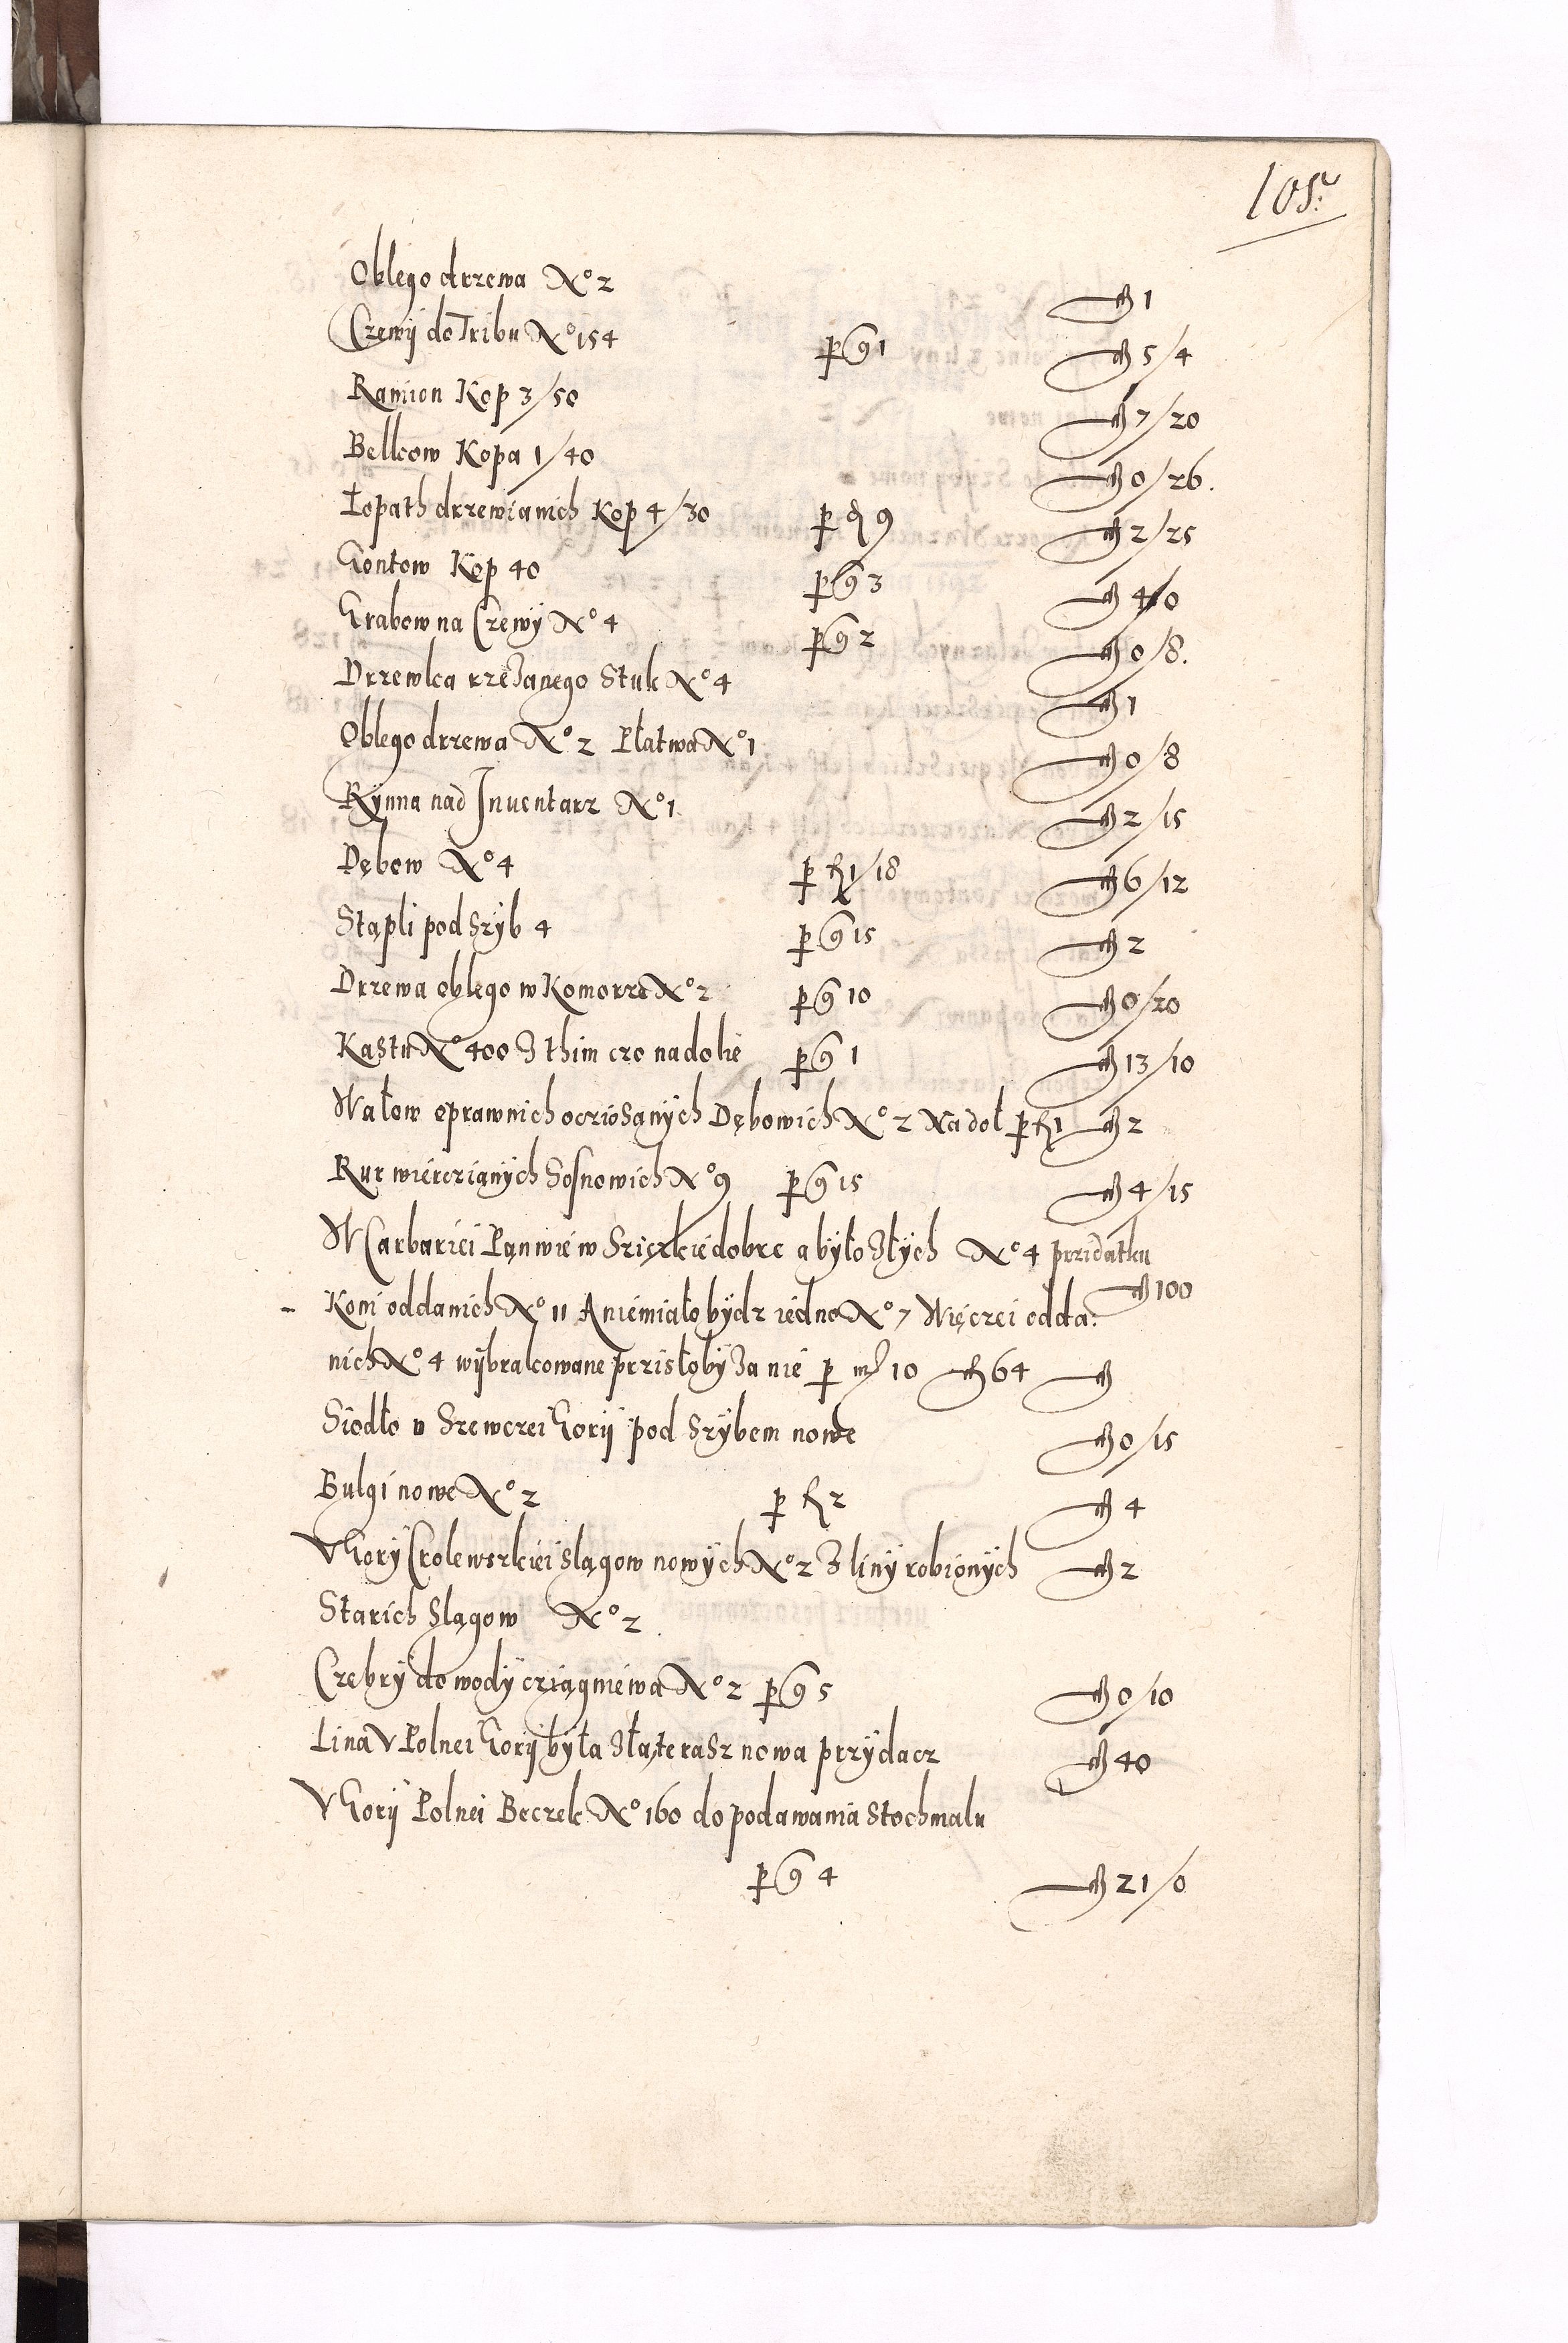 105.
Oblego drzewa No 2 fl 1
Czewÿ do Tribu No 154 p g 1 fl 5/4
Ramion Kop 3/50 fl 7/20
Belkow Kopa 1/40 fl 0/26.
Łopath drzewianich Kop 4/30 p d 9 fl 2/25
Gontow Kop 40 p g 3 fl 4/0
Grabow na Czewÿ No 4 p g 2 fl 0/8.
Drzewka rzezanego Stuk No 4 fl 1
Oblego drzewa No 2 Płatwa No 1 fl 0/8
Rÿnna nad Inuentarz No 1 fl 2/15
Dębow No 4 p fl 1/18 fl 6/12
Stąpli pod Szÿb 4 p g 15 fl 2
Drzewa oblego w Komorze No 2 p g 10 fl 0/20
Kasztu No 400 z thim czo na dolie p g 1 fl 13/10
Wałow oprawnich ocziosanÿch Dębowich No 2 Na doł p fl 1 fl 2
Rur wierczianÿch Sosnowich No 9 p g 15 fl 4/15
W Carbariei Panwie w Sziczkie dobre a bÿło złÿch No 4 przidatku
fl 100
- Koni oddanich No 11 A niemiało bÿdz iedno No 7 Więczei odda:
nich No 4 wÿbrakowane prziszłobÿ za nie p 10 fl 64 fl
Siodło v Szewczei Gorÿ pod Szÿbem nowe fl 0/15
Bulgi nowe No 2 p fl 2 fl 4
V Gorÿ Crolewskiei Slągow nowÿch No 2 z linÿ robionÿch fl 2
Starich Slągow No 2
Czebrÿ do wodÿ cziągniewa No 2 p g 5 fl 0/10
Lina V Polnei Gorÿ bÿła zła, terasz nowa przÿdacz fl 40
V Gorÿ Polnei Beczek No 160 do podawania Stochmalu
p g 4 fl 21/0